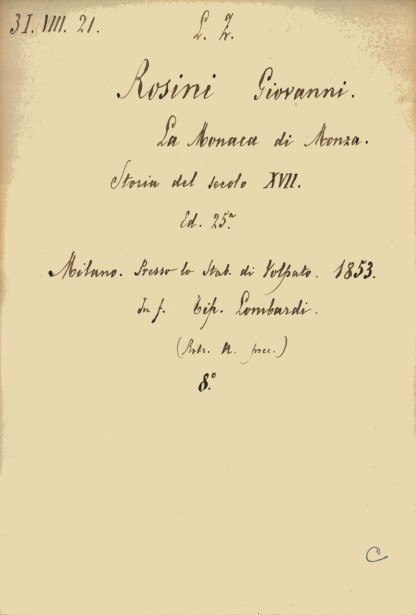 31. VIII. 21.
L. Z.
Rosini Giovanni.
La Monaca di Monza.
Storia del secolo XVII.
Ed. 25ª
Milano. Presso lo Stab. di Volpato. 1853.
In f. Tip. Lombardi.
(Ritr. A. prec.)
8.º
C